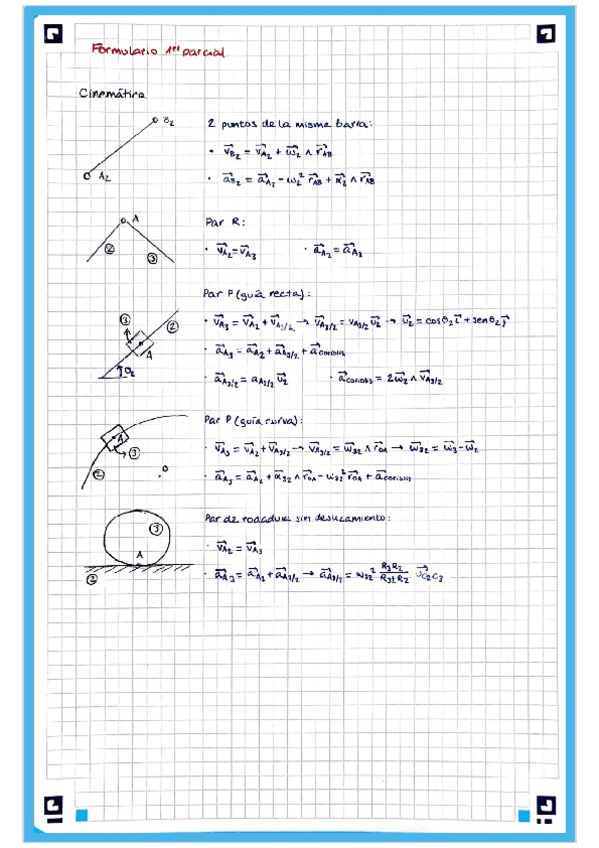 Formulario 1er parcial
Cinemática
B₂
A₂
2 puntos de la misma barra:
· v⃗B₂ = v⃗A₂ + ω⃗₂ ∧ r⃗AB
· a⃗B₂ = a⃗A₂ - ω₂² r⃗AB + α⃗₂ ∧ r⃗AB
A
② ③
Par R:
· v⃗A₂ = v⃗A₃ · a⃗A₂ = a⃗A₃
③ ②
A
θ₂
Par P (guía recta):
· v⃗A₃ = v⃗A₂ + v⃗A₃/₂ → v⃗A₃/₂ = vA₃/₂ u⃗₂ → u⃗₂ = cosθ₂ i⃗ + senθ₂ j⃗
· a⃗A₃ = a⃗A₂ + a⃗A₃/₂ + a⃗coriolis
· a⃗A₃/₂ = aA₃/₂ u⃗₂ · a⃗coriolis = 2ω⃗₂ ∧ v⃗A₃/₂
A
③
② O
Par P (guía curva):
· v⃗A₃ = v⃗A₂ + v⃗A₃/₂ → v⃗A₃/₂ = ω⃗₃₂ ∧ r⃗OA → ω⃗₃₂ = ω⃗₃ - ω⃗₂
· a⃗A₃ = a⃗A₂ + α⃗₃₂ ∧ r⃗OA - ω₃₂² r⃗OA + a⃗coriolis
③
A
②
Par de rodadura sin deslizamiento:
· v⃗A₂ = v⃗A₃
· a⃗A₃ = a⃗A₂ + a⃗A₃/₂ → a⃗A₃/₂ = ω₃₂² R₃R₂/R₃±R₂ u⃗C₂C₃